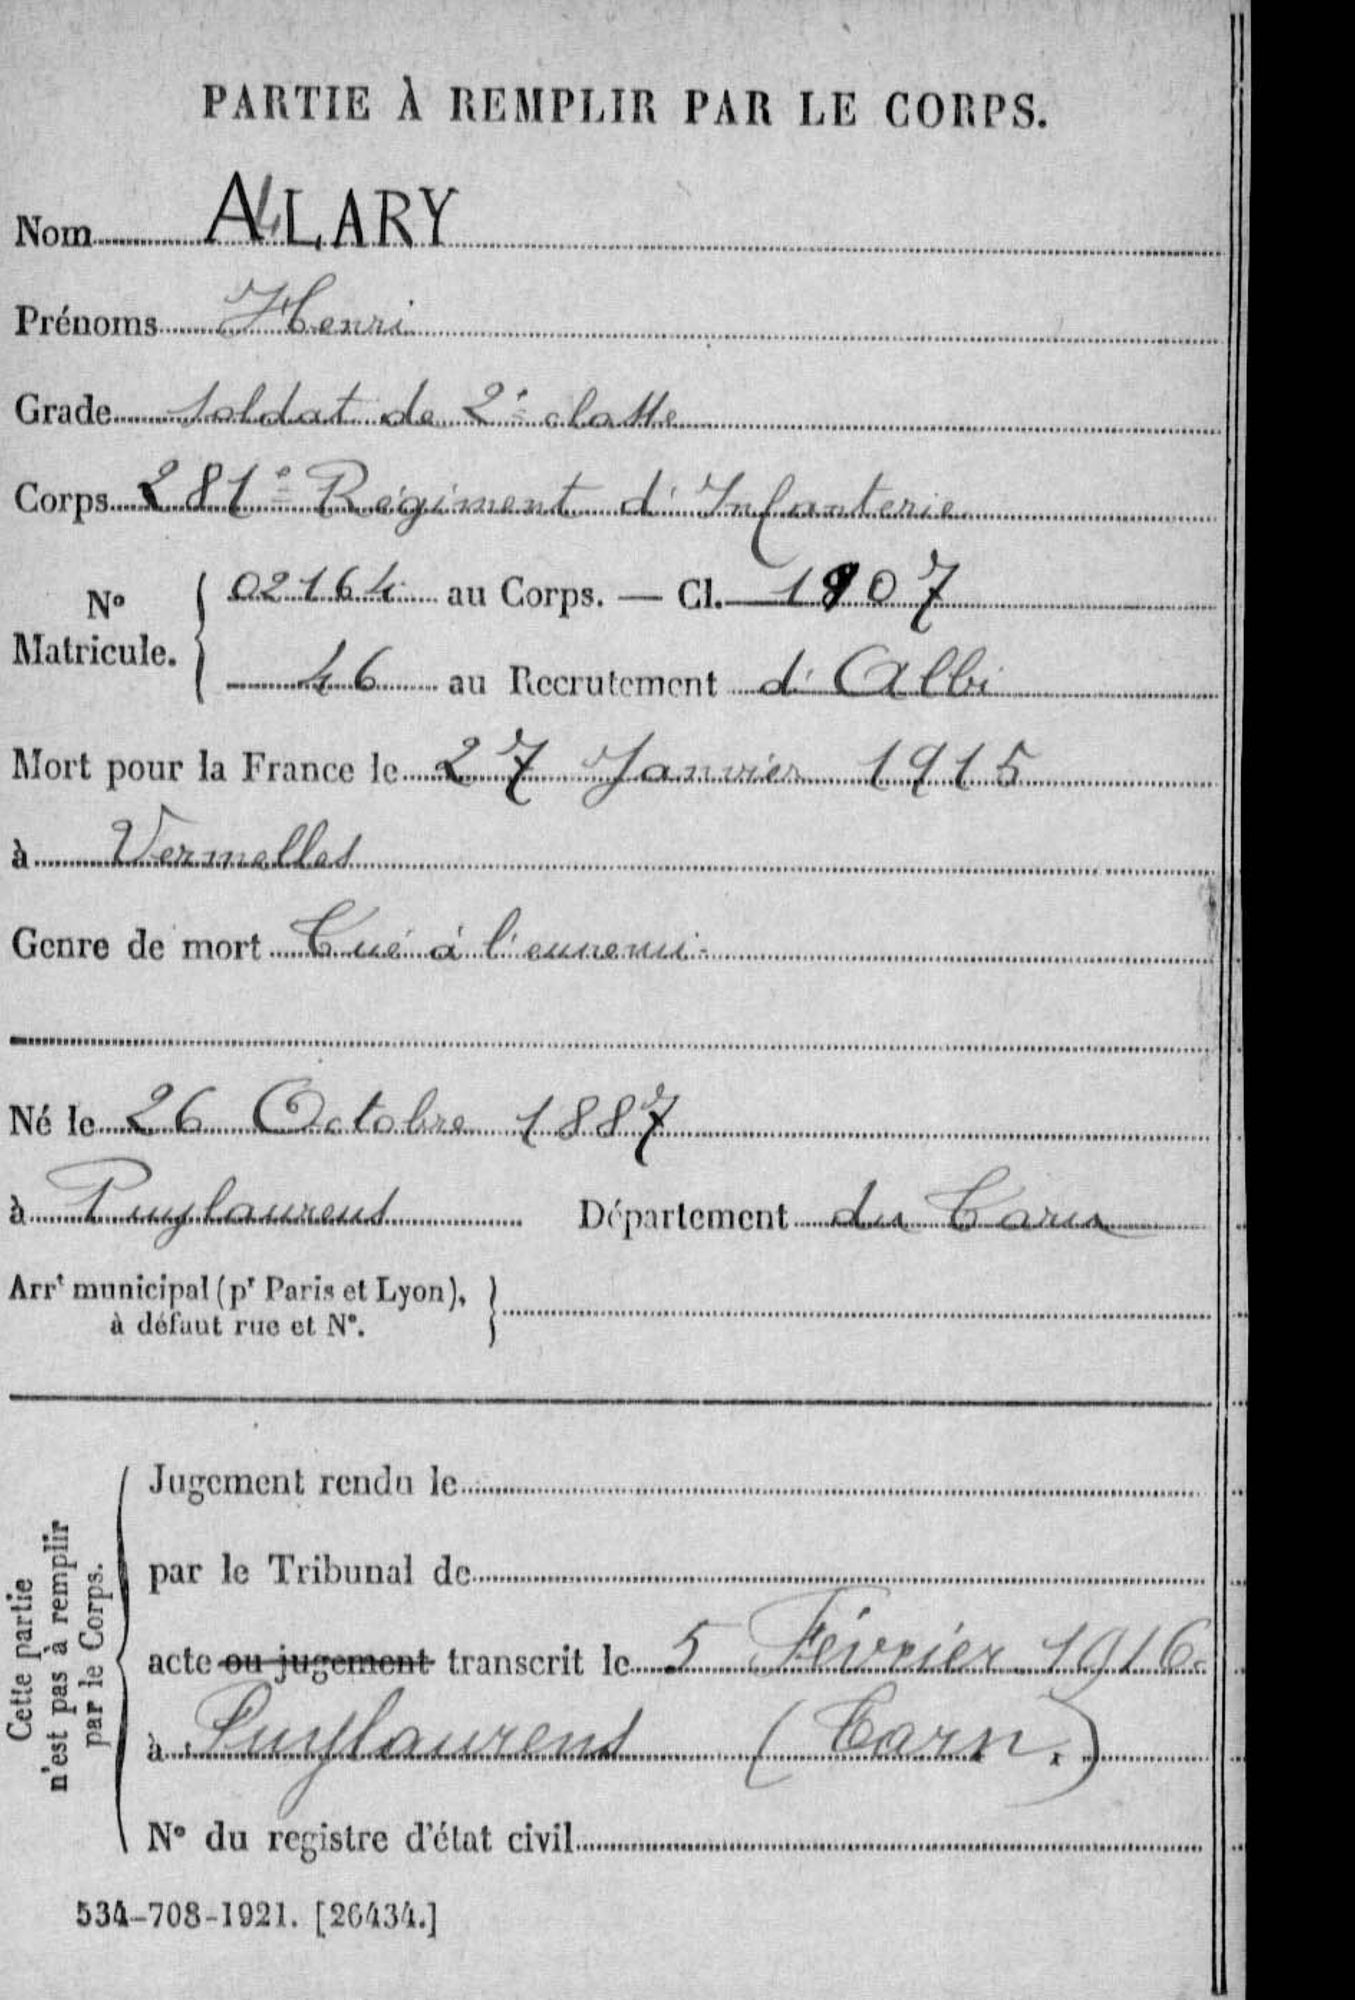 PARTIE À REMPLIR PAR LE CORPS.
Nom ALLARY
Prénoms Henri
Grade soldat de 2e classe
Corps 281e Régiment d'Infanterie
No Matricule. { 02164 au Corps. — Cl. 1907
46 au Recrutement d'Albi
Mort pour la France le 27 Janvier 1915
à Vermelles
Genre de mort Tué à l'ennemi
Né le 26 Octobre 1887
à Puylaurens Département du Tarn
Arrt municipal (pr Paris et Lyon), }
à défaut rue et No.
Cette partie
n'est pas à remplir
par le Corps.
Jugement rendu le
par le Tribunal de
acte ou jugement transcrit le 5 Février 1916
à Puylaurens (Tarn.)
No du registre d'état civil
534-708-1921. [26434.]